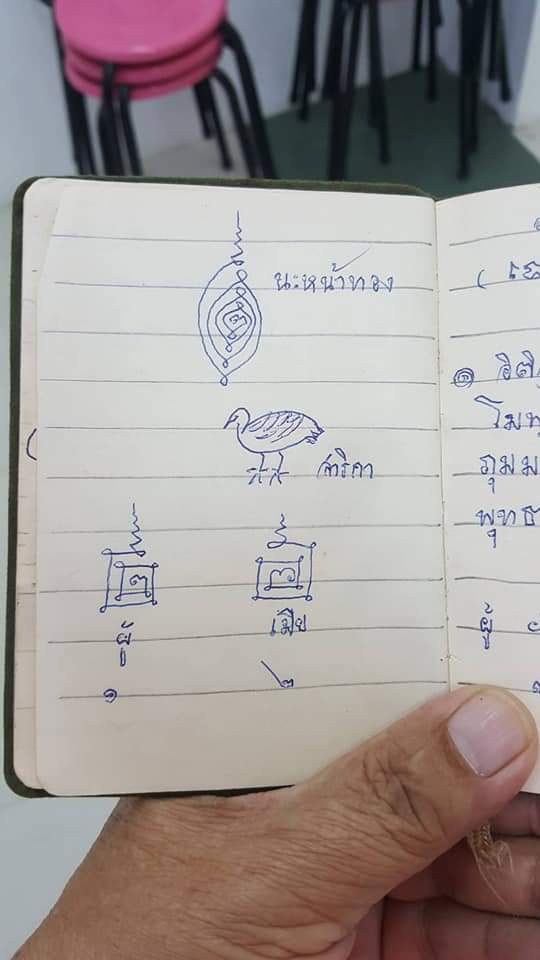 นะหน้าทอง
สาริกา
ผู้ เมีย
๑ ๒
๑ อิติ
โมพุ
ภุมม
พุทธ
ผู้